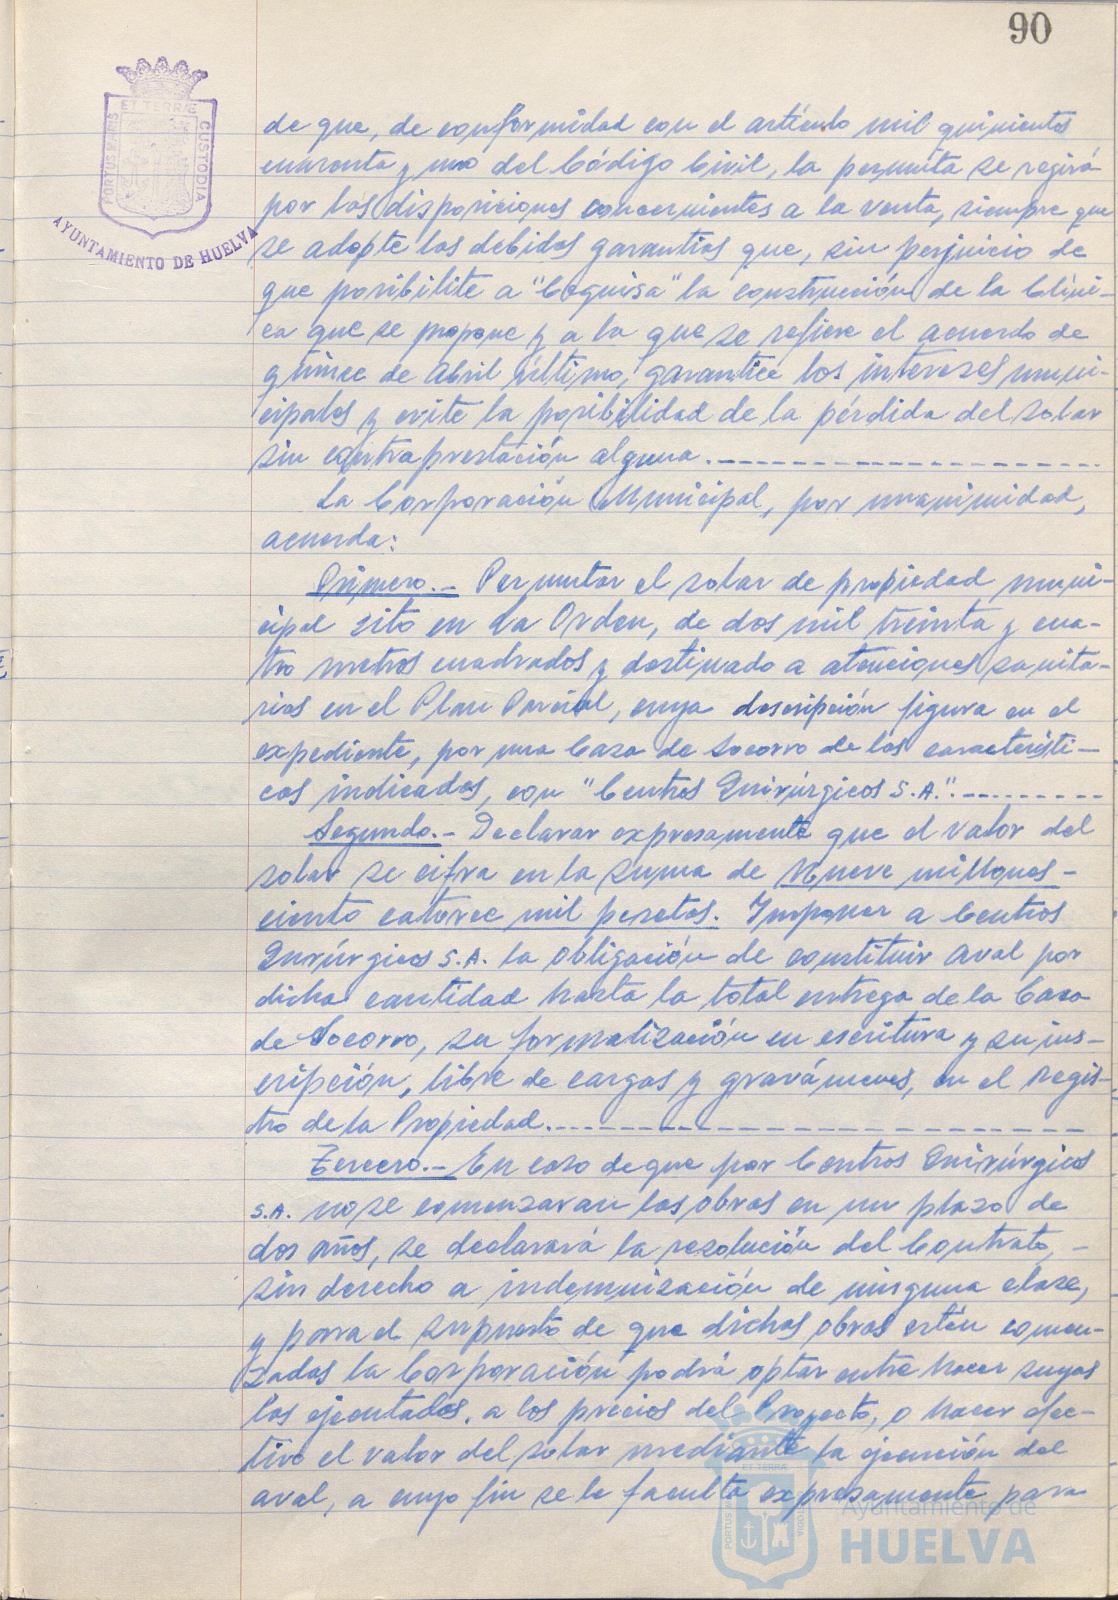 90
ET TERRÆ
PORTUS MARIS
CUSTODIA
AYUNTAMIENTO DE HUELVA
de que, de conformidad con el artículo mil quinientos
cuarenta y uno del Código Civil, la permuta se regirá
por las disposiciones concernientes a la venta, siempre que
se adopte las debidas garantías que, sin perjuicio de
que posibilite a "Cequisa" la construcción de la Clíni-
ca que se propone y a la que se refiere el acuerdo de
quince de Abril último, garantice los intereses muni-
cipales y evite la posibilidad de la pérdida del solar
sin contraprestación alguna.
La Corporación Municipal, por unanimidad,
acuerda:
Primero.- Permutar el solar de propiedad muni-
cipal sito en La Orden, de dos mil treinta y cua-
tro metros cuadrados y destinado a atenciones sanita-
rias en el Plan Parcial, cuya descripción figura en el
expediente, por una Casa de Socorro de las característi-
cas indicadas, con "Centros Quirúrgicos S.A.".
Segundo.- Declarar expresamente que el valor del
solar se cifra en la suma de Nueve millones-
ciento catorce mil pesetas. Imponer a Centros
Quirúrgicos S.A. la obligación de constituir aval por
dicha cantidad hasta la total entrega de la Casa
de Socorro, su formalización en escritura y su ins-
cripción, libre de cargas y gravámenes, en el Regis-
tro de la Propiedad.
Tercero.- En caso de que por Centros Quirúrgicos
S.A. no se comenzaran las obras en un plazo de
dos años, se declarará la resolución del Contrato, -
sin derecho a indemnización de ninguna clase,
y para el supuesto de que dichas obras estén comen-
zadas la Corporación podrá optar entre hacer suyas
las ejecutadas, a los precios del Proyecto, o hacer efec-
tivo el valor del solar mediante la ejecución del
aval, a cuyo fin se le faculta expresamente para
ET TERRÆ
PORTUS
CUSTODIA
Ayuntamiento de
HUELVA